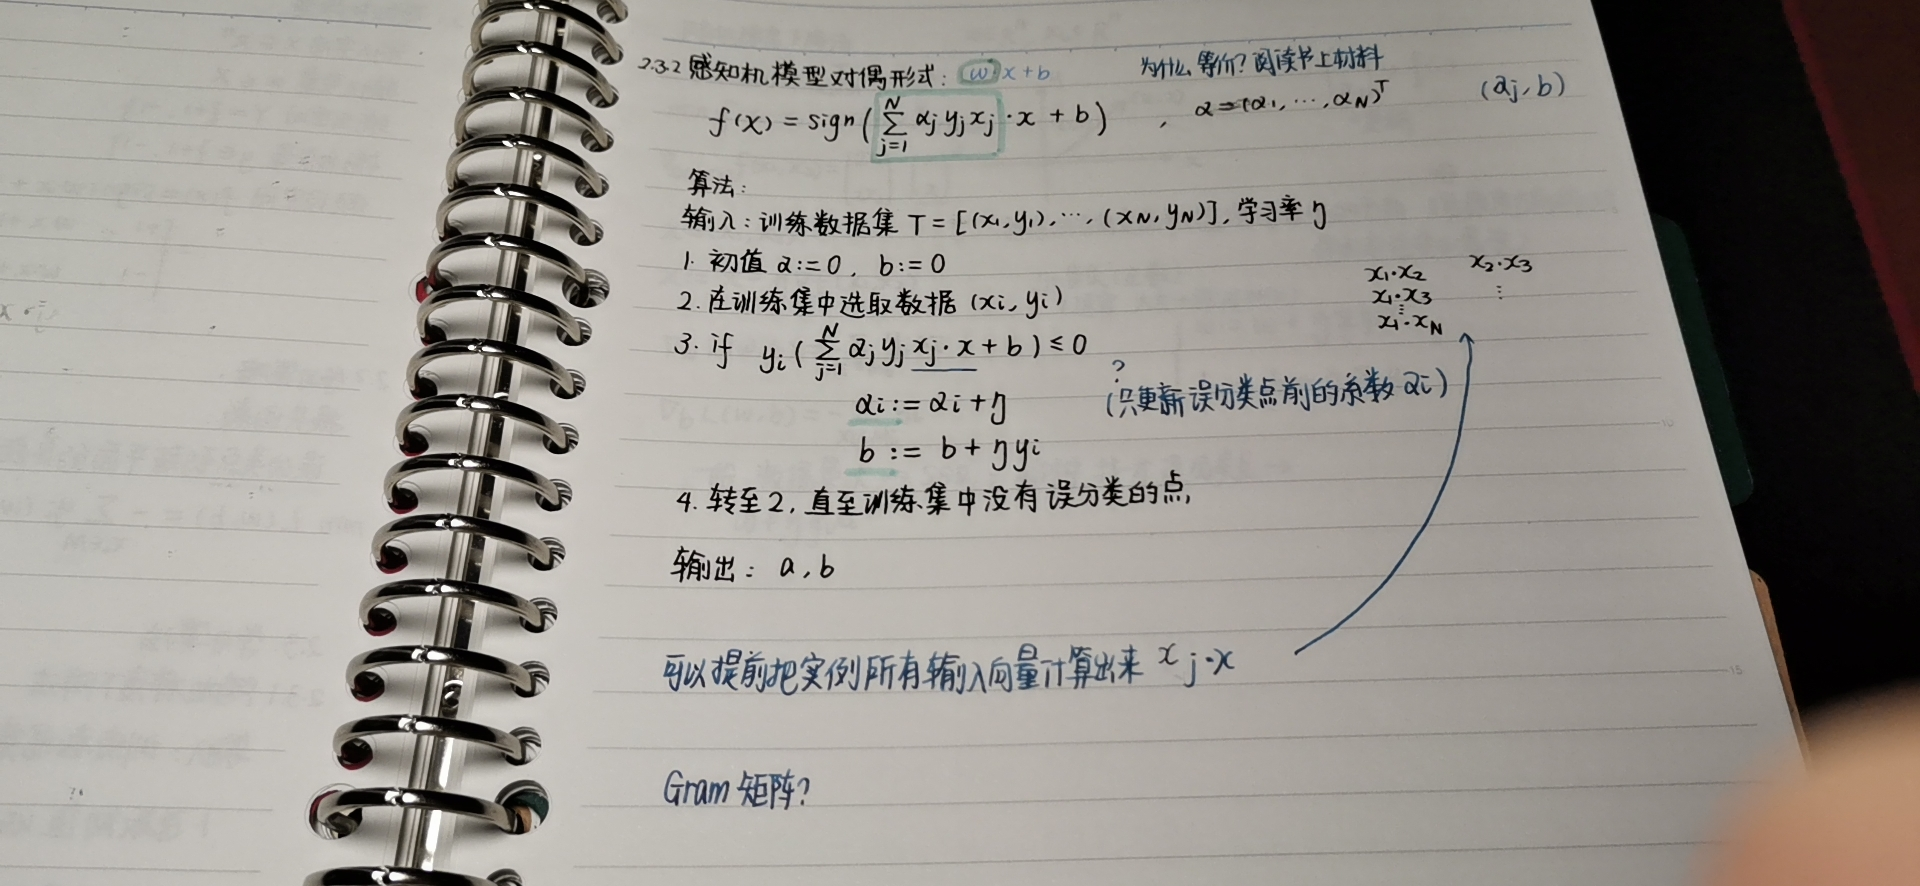 2.3.2 感知机模型对偶形式: w·x+b 为什么等价? 阅读书上材料
f(x) = sign( Σ_{j=1}^{N} αj yj xj · x + b ) , α=(α1, ⋯, αN)^T (αj, b)
算法:
输入: 训练数据集 T = [(x1, y1), ⋯, (xN, yN)], 学习率 η
1. 初值 α:=0, b:=0
2. 在训练集中选取数据 (xi, yi)
x1·x2 x2·x3
x1·x3 ⋮
⋮
x1·xN
3. if yi ( Σ_{j=1}^{N} αj yj xj · x + b ) ≤ 0
αi := αi + η ? (只更新误分类点前的系数 αi)
b := b + η yi
4. 转至2, 直至训练集中没有误分类的点,
输出: a, b
可以提前把实例所有输入向量计算出来 xj·x
Gram 矩阵?